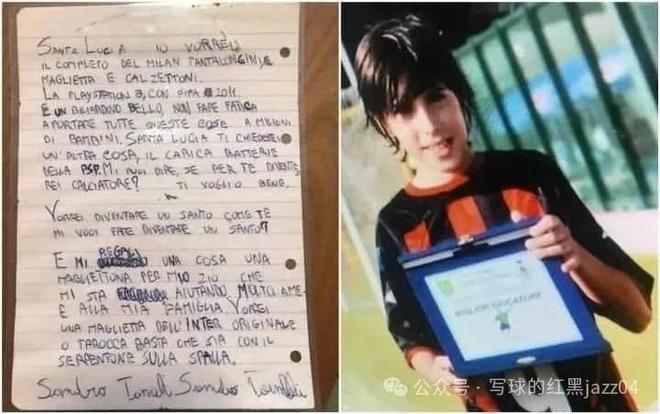 SANTA LUCIA IO VORREI:
IL COMPLETO DEL MILAN PANTALONCINI,
MAGLIETTA E CALZETTONI.
LA PLAYSTATION 3, CON FIFA 2011.
E UN BILIARDINO BELLO, NON FARE FATICA
A PORTARE TUTTE QUESTE COSE A MILIONI
DI BAMBINI. SANTA LUCIA TI CHIEDEREI
UN'ALTRA COSA, IL CARICA BATTERIE
DELLA PSP. MI PUOI DIRE, SE PER TE DIVENTE
REI CALCIATORE? TI VOGLIO BENE.
VORREI DIVENTARE UN SANTO COME TE
MI VUOI FARE DIVENTARE UN SANTO?
E MI REGALI UNA COSA UNA
MAGLIETTONA PER MIO ZIO CHE
MI STA AIUTANDO MULTO A ME
E ALLA MIA FAMIGLIA. VORREI
UNA MAGLIETTA DELL'INTER ORIGINALE
O TAROCCA BASTA CHE SIA CON IL
SERPENTONE SULLA SPALLA.
Sandro Tonali Sandro Tonali
MIGLIOR GIOCATORE
公众号 · 写球的红黑jazz04